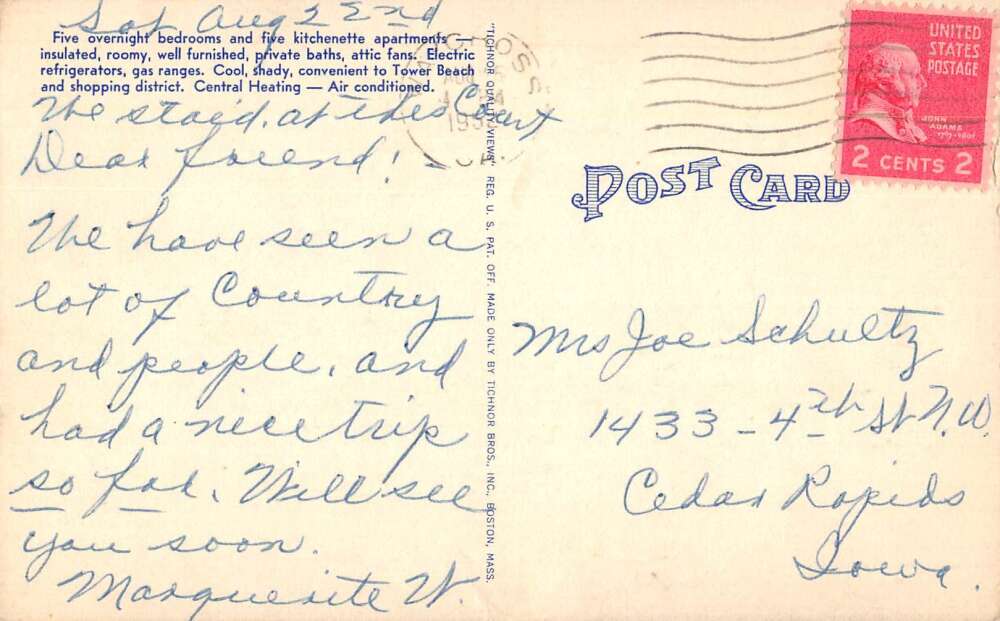 Sat Aug 22nd
Five overnight bedrooms and five kitchenette apartments —
insulated, roomy, well furnished, private baths, attic fans. Electric
refrigerators, gas ranges. Cool, shady, convenient to Tower Beach
and shopping district. Central Heating — Air conditioned.
We staid at this Court
Dear friend! –
We have seen a
lot of Country
and people, and
had a nice trip
so far. Will see
you soon.
Marguerite W.
"TICHNOR QUALITY VIEWS" REG. U. S. PAT. OFF. MADE ONLY BY TICHNOR BROS., INC., BOSTON, MASS.
UNITED
STATES
POSTAGE
JOHN
ADAMS
1797-1801
2 CENTS 2
POST CARD
Mrs Joe Schultz
1433 – 4th St N.W.
Cedar Rapids
Iowa.